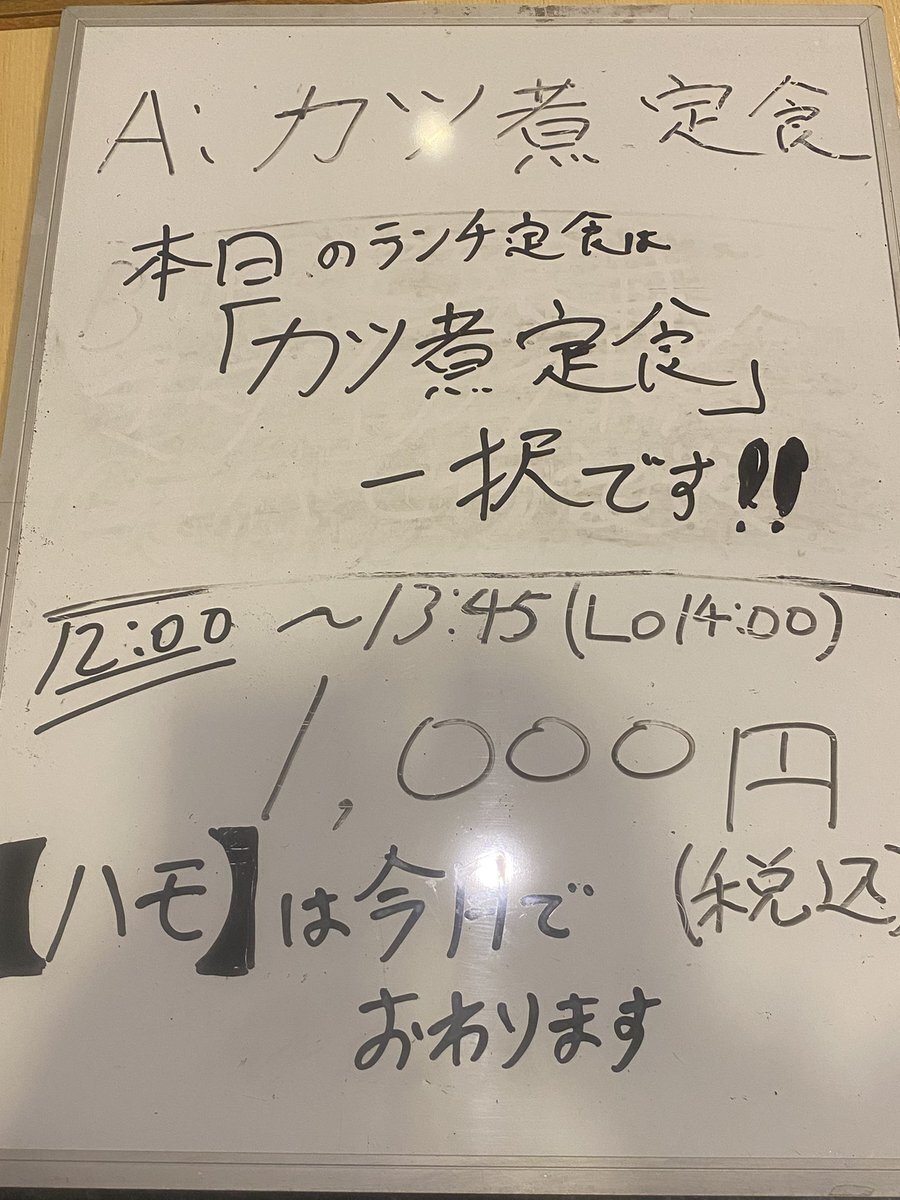 A: カツ煮定食
本日のランチ定食は
「カツ煮定食」
一択です!!
12:00 ~13:45(LO14:00)
1,000円
(税込)
【ハモ】は今月で
おわります